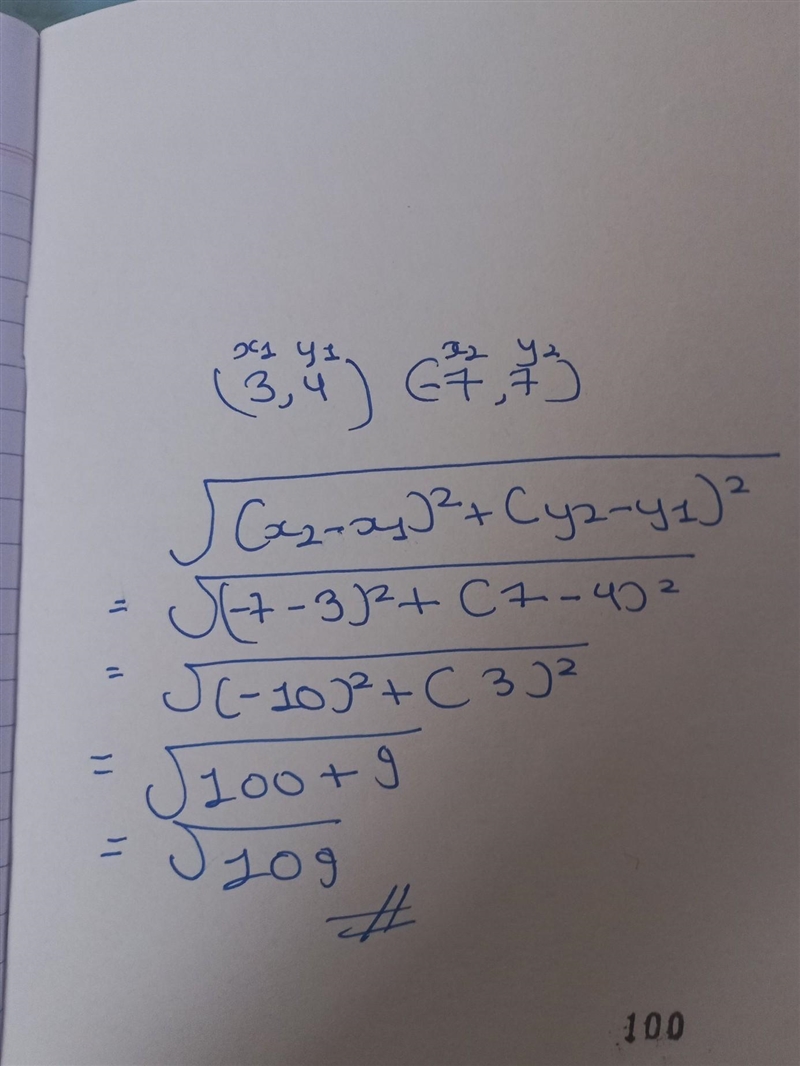 x1 y1 x2 y2
(3, 4) (-7, 7)
√(x2-x1)²+(y2-y1)²
= √(-7-3)²+(7-4)²
= √(-10)²+(3)²
= √100+9
= √109
100